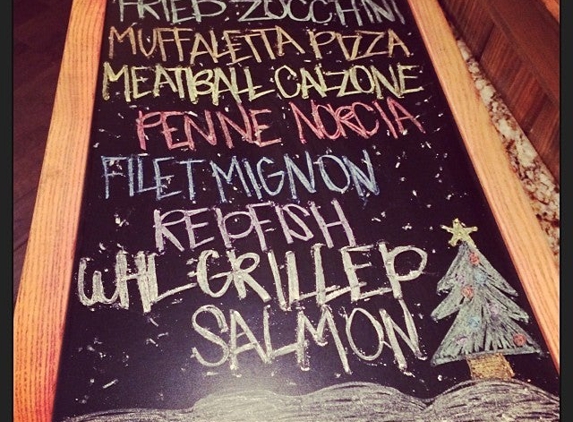 FRIED ZOCCHINI
MUFFALETTA PIZZA
MEATBALL CALZONE
PENNE NORCIA
FILET MIGNON
REDFISH
WHL GRILLED
SALMON